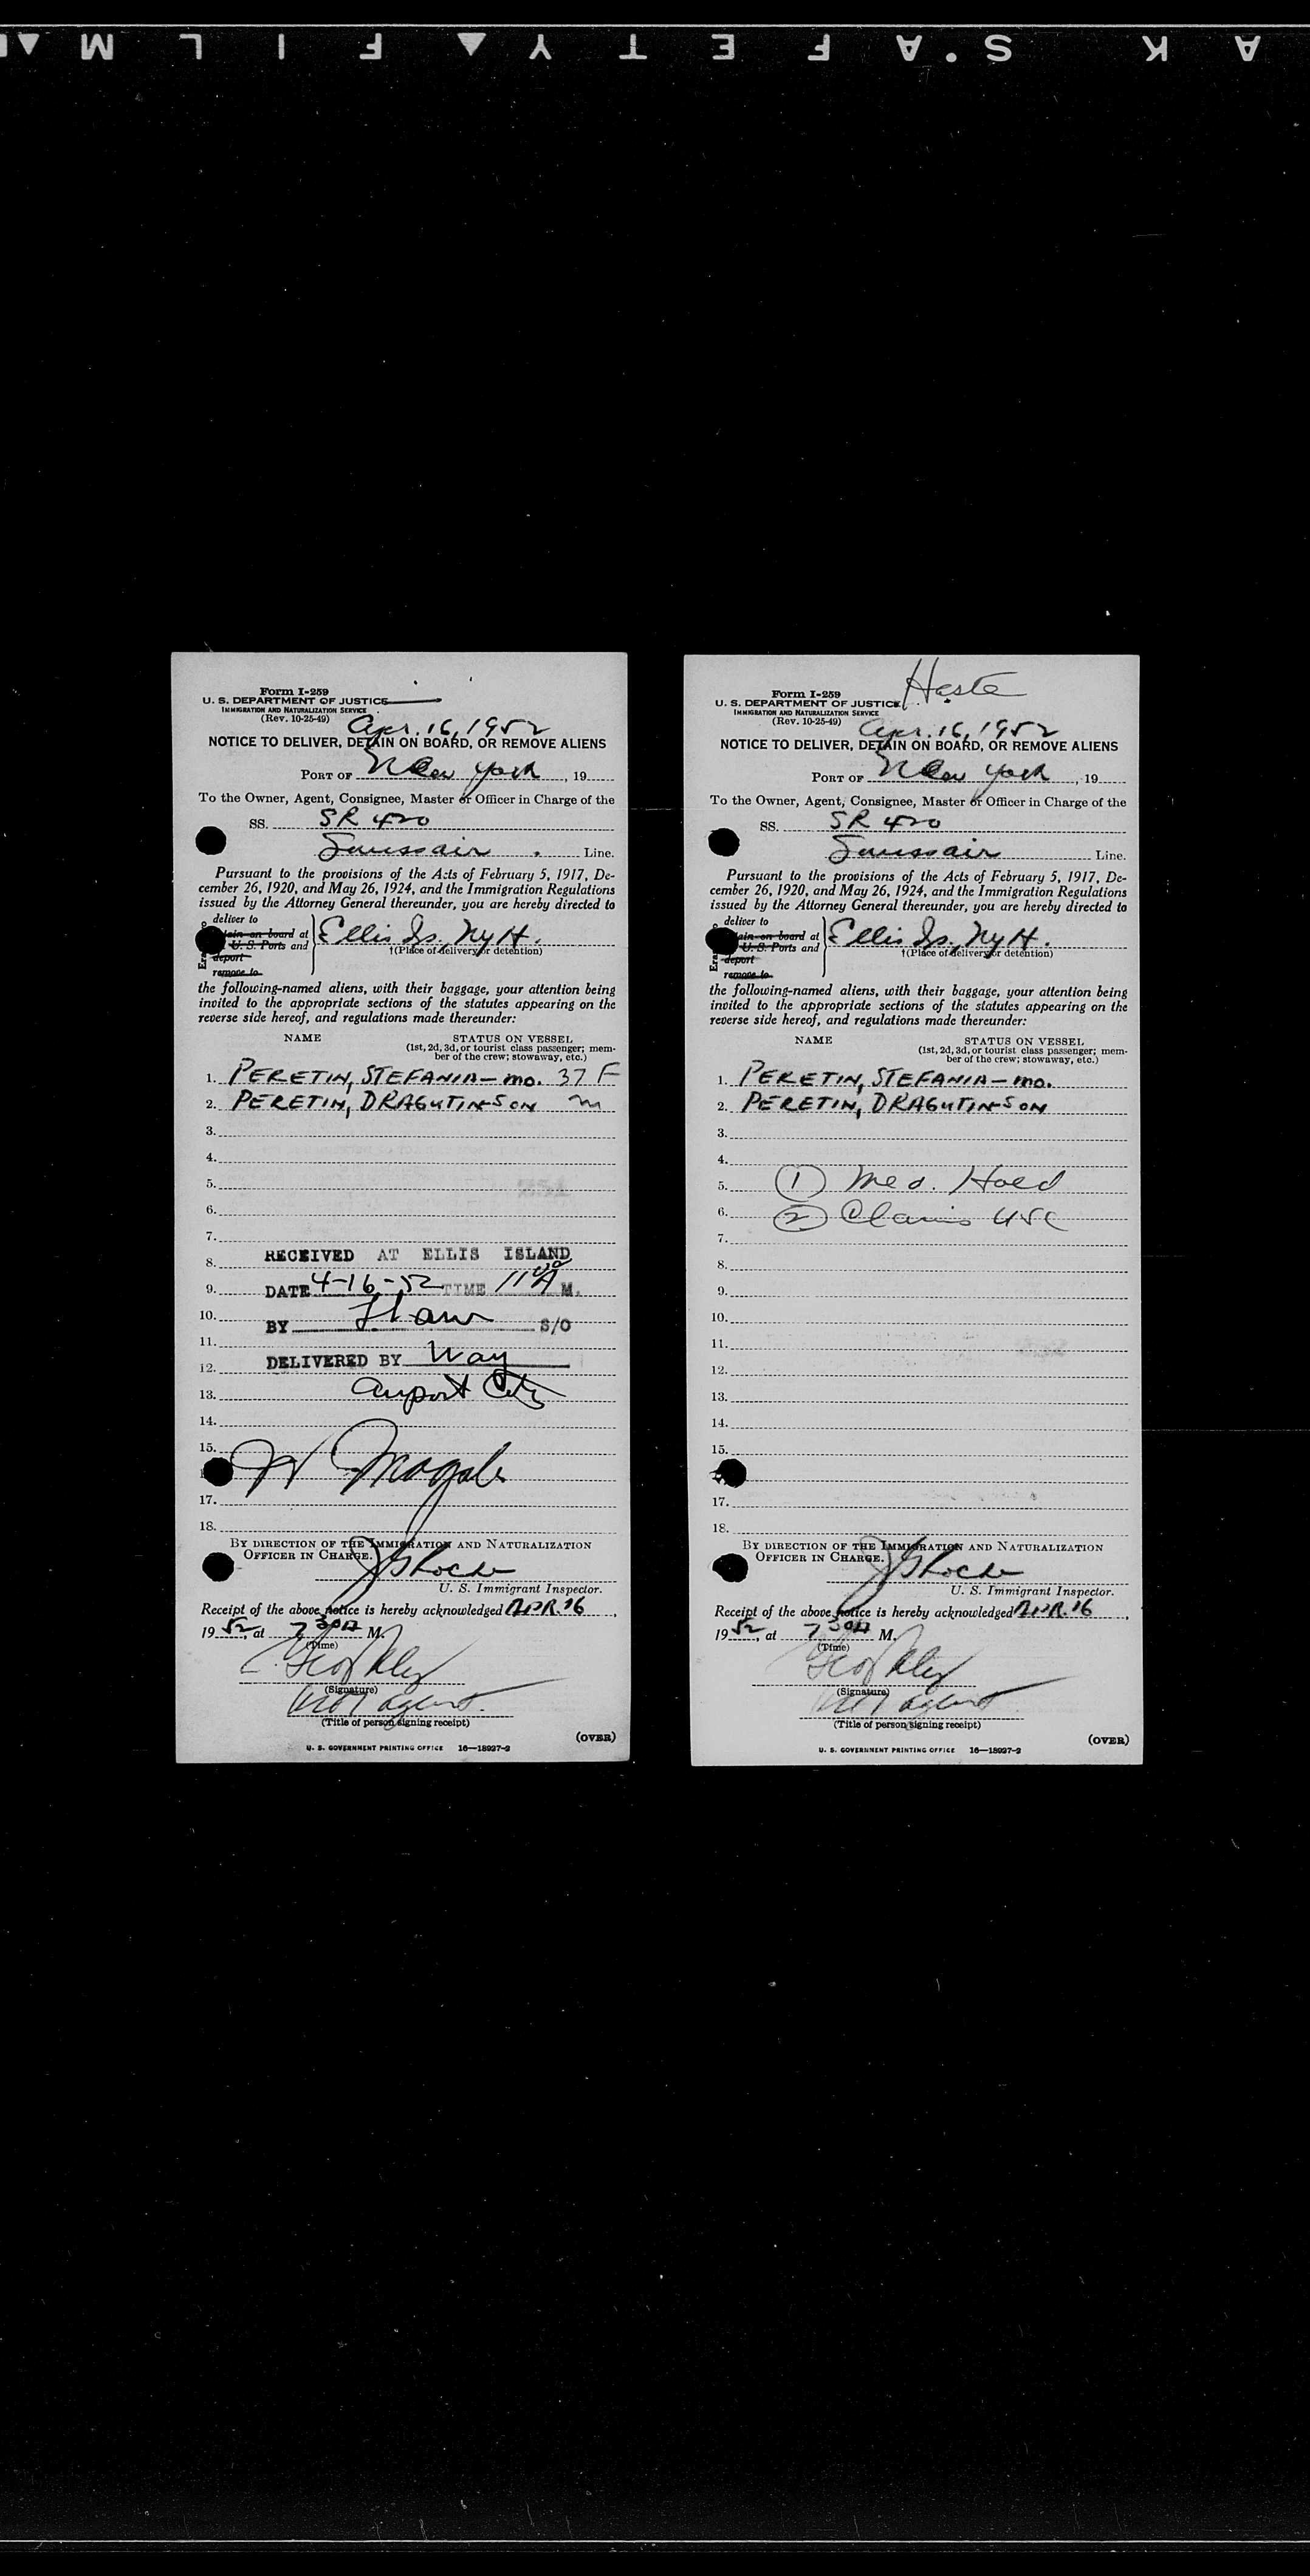 KODAK SAFETY FILM
Form I-259
U. S. DEPARTMENT OF JUSTICE
IMMIGRATION AND NATURALIZATION SERVICE
(Rev. 10-25-49)
Apr. 16, 1952
NOTICE TO DELIVER, DETAIN ON BOARD, OR REMOVE ALIENS
PORT OF New York, 19
To the Owner, Agent, Consignee, Master or Officer in Charge of the
SS. SR 420
Swissair Line.
Pursuant to the provisions of the Acts of February 5, 1917, De-
cember 26, 1920, and May 26, 1924, and the Immigration Regulations
issued by the Attorney General thereunder, you are hereby directed to
deliver to
tain on board at
U. S. Ports and
deport
remove to
Ellis Is., NyH.
†(Place of delivery or detention)
the following-named aliens, with their baggage, your attention being
invited to the appropriate sections of the statutes appearing on the
reverse side hereof, and regulations made thereunder:
NAME STATUS ON VESSEL
(1st, 2d, 3d, or tourist class passenger; mem-
ber of the crew; stowaway, etc.)
1. PERETIN, STEFANIA - mo. 37 F
2. PERETIN, DRAGUTIN-SON m
3.
4.
5.
6.
7.
8. RECEIVED AT ELLIS ISLAND
9. DATE 4-16-52 TIME 11 A M.
10.
BY S/O
11.
12. DELIVERED BY Way
13. airport
14.
15.
17.
18.
BY DIRECTION OF THE IMMIGRATION AND NATURALIZATION
OFFICER IN CHARGE.
U. S. Immigrant Inspector.
Receipt of the above notice is hereby acknowledged APR. 16,
19 52, at 7 30A M.
(Time)
(Signature)
agent.
(Title of person signing receipt)
(OVER)
U. S. GOVERNMENT PRINTING OFFICE 16—18927-2
Form I-259
U. S. DEPARTMENT OF JUSTICE
IMMIGRATION AND NATURALIZATION SERVICE
(Rev. 10-25-49)
Apr. 16, 1952
NOTICE TO DELIVER, DETAIN ON BOARD, OR REMOVE ALIENS
PORT OF New York, 19
To the Owner, Agent, Consignee, Master or Officer in Charge of the
SS. SR 420
Swissair Line.
Pursuant to the provisions of the Acts of February 5, 1917, De-
cember 26, 1920, and May 26, 1924, and the Immigration Regulations
issued by the Attorney General thereunder, you are hereby directed to
deliver to
tain on board at
U. S. Ports and
deport
remove to
Ellis Is., NyH.
†(Place of delivery or detention)
the following-named aliens, with their baggage, your attention being
invited to the appropriate sections of the statutes appearing on the
reverse side hereof, and regulations made thereunder:
NAME STATUS ON VESSEL
(1st, 2d, 3d, or tourist class passenger; mem-
ber of the crew; stowaway, etc.)
1. PERETIN, STEFANIA - mo.
2. PERETIN, DRAGUTIN-SON
3.
4.
5. (1) Med. Hold
6. (2) Claims USC
7.
8.
9.
10.
11.
12.
13.
14.
15.
17.
18.
BY DIRECTION OF THE IMMIGRATION AND NATURALIZATION
OFFICER IN CHARGE.
U. S. Immigrant Inspector.
Receipt of the above notice is hereby acknowledged APR. 16,
19 52, at 7 30A M.
(Time)
(Signature)
agent.
(Title of person signing receipt)
(OVER)
U. S. GOVERNMENT PRINTING OFFICE 16—18927-2